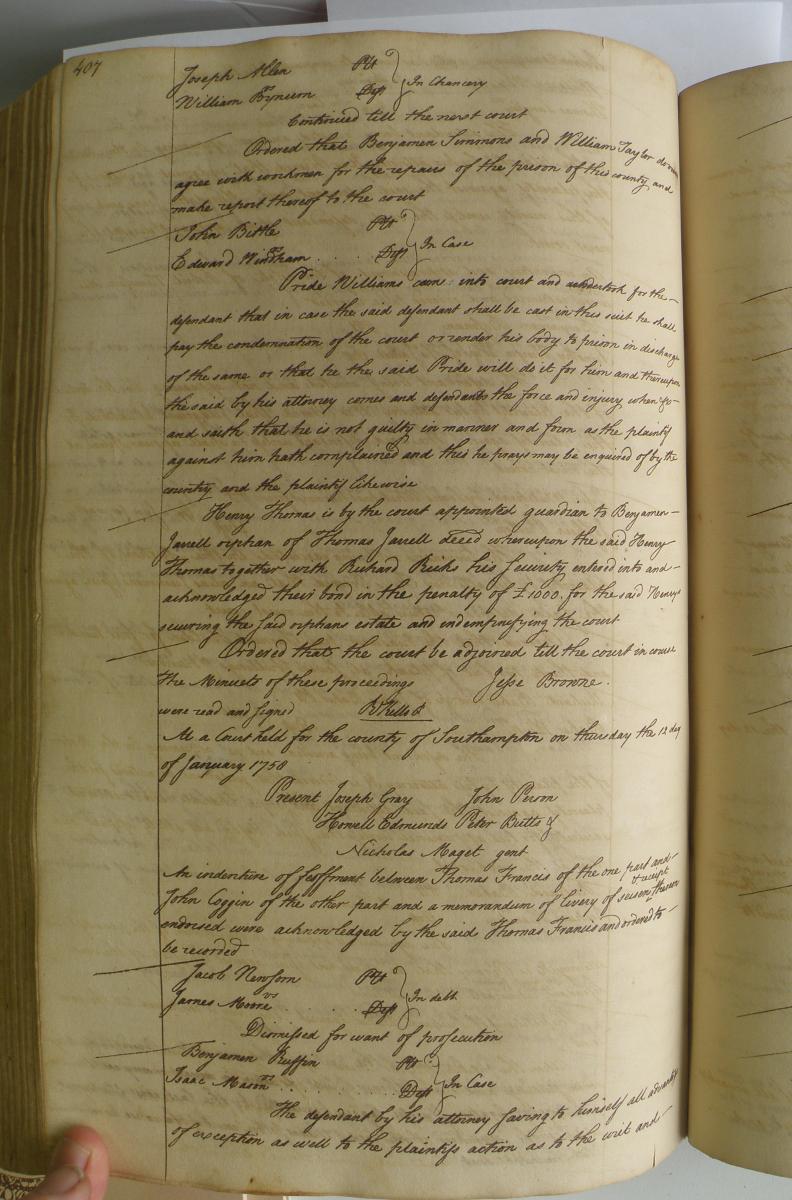 407
Joseph Allen Plt
vs
William Bynum Deft } In Chancery
Continued till the next court
Ordered that Benjamen Simmons and William Taylor do
agree with workmen for the repairs of the prison of this county and
make report thereof to the court
John Bittle Plt
vs
Edward Windham Deft } In Case
Pride Williams came into court and undertook for the
defendant that in case the said defendant shall be cast in this suit he shall
pay the condemnation of the court or render his body to prison in discharge
of the same or that he the said Pride will do it for him and thereupon
the said by his attorney comes and defendants the force and injury when &c
and saith that he is not guilty in manner and form as the plaintif
against him hath complained and this he prays may be enquired of by the
country and the plaintif likewise
Henry Thomas is by the court appointed guardian to Benjamen
Jarrell orphan of Thomas Jarrell deced whereupon the said Henry
Thomas together with Richard Ricks his security entered into and
acknowledged their bond in the penalty of £1000. for the said Henrys
securing the said orphans estate and indempnifying the court
Ordered that the court be adjoined till the court in course
The Minuets of these proceedings Jesse Browne.
were read and signed
At a Court held for the county of Southampton on thursday the 12 day
of January 1758
Present Joseph Gray John Person
Howell Edmunds Peter Butts &
Nicholas Maget gent
An indenture of feoffment between Thomas Francis of the one part and
John Coggin of the other part and a memorandum of livery of seisen & receipt thereon
endorsed were acknowledged by the said Thomas Francis and ordered to
be recorded
Jacob Newsom Plt
vs
James Moore Deft } In debt
Dismissed for want of prosecution
Benjamen Ruffin Plt
vs
Isaac Mason Deft } In Case
The defendant by his attorney saving to himself all advantage
of exception as well to the plaintifs action as to the writ and